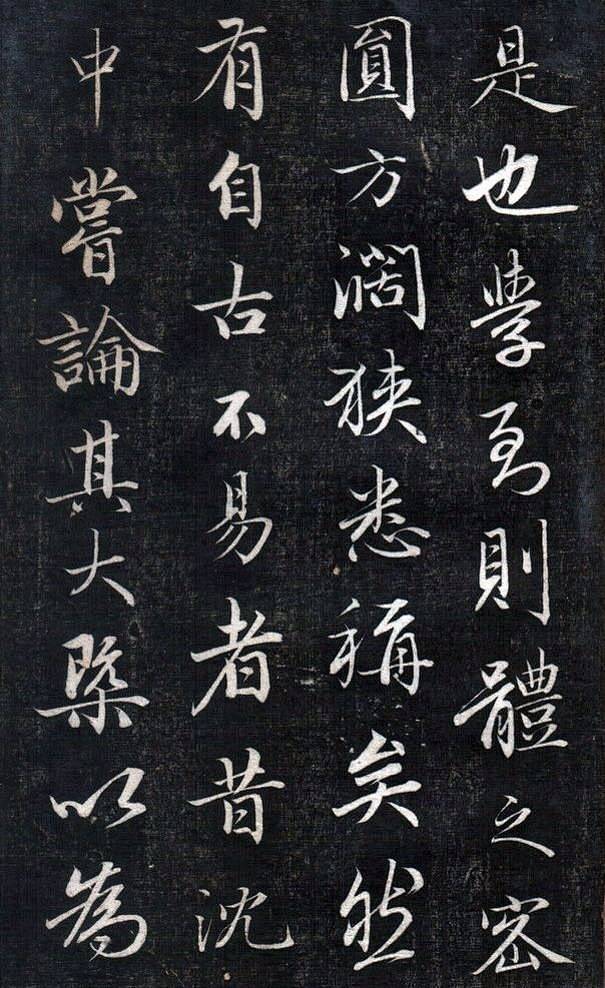 是也學至則體之密
圓方濶狹悉稱矣然
有自古不易者昔沈
中嘗論其大槩以為